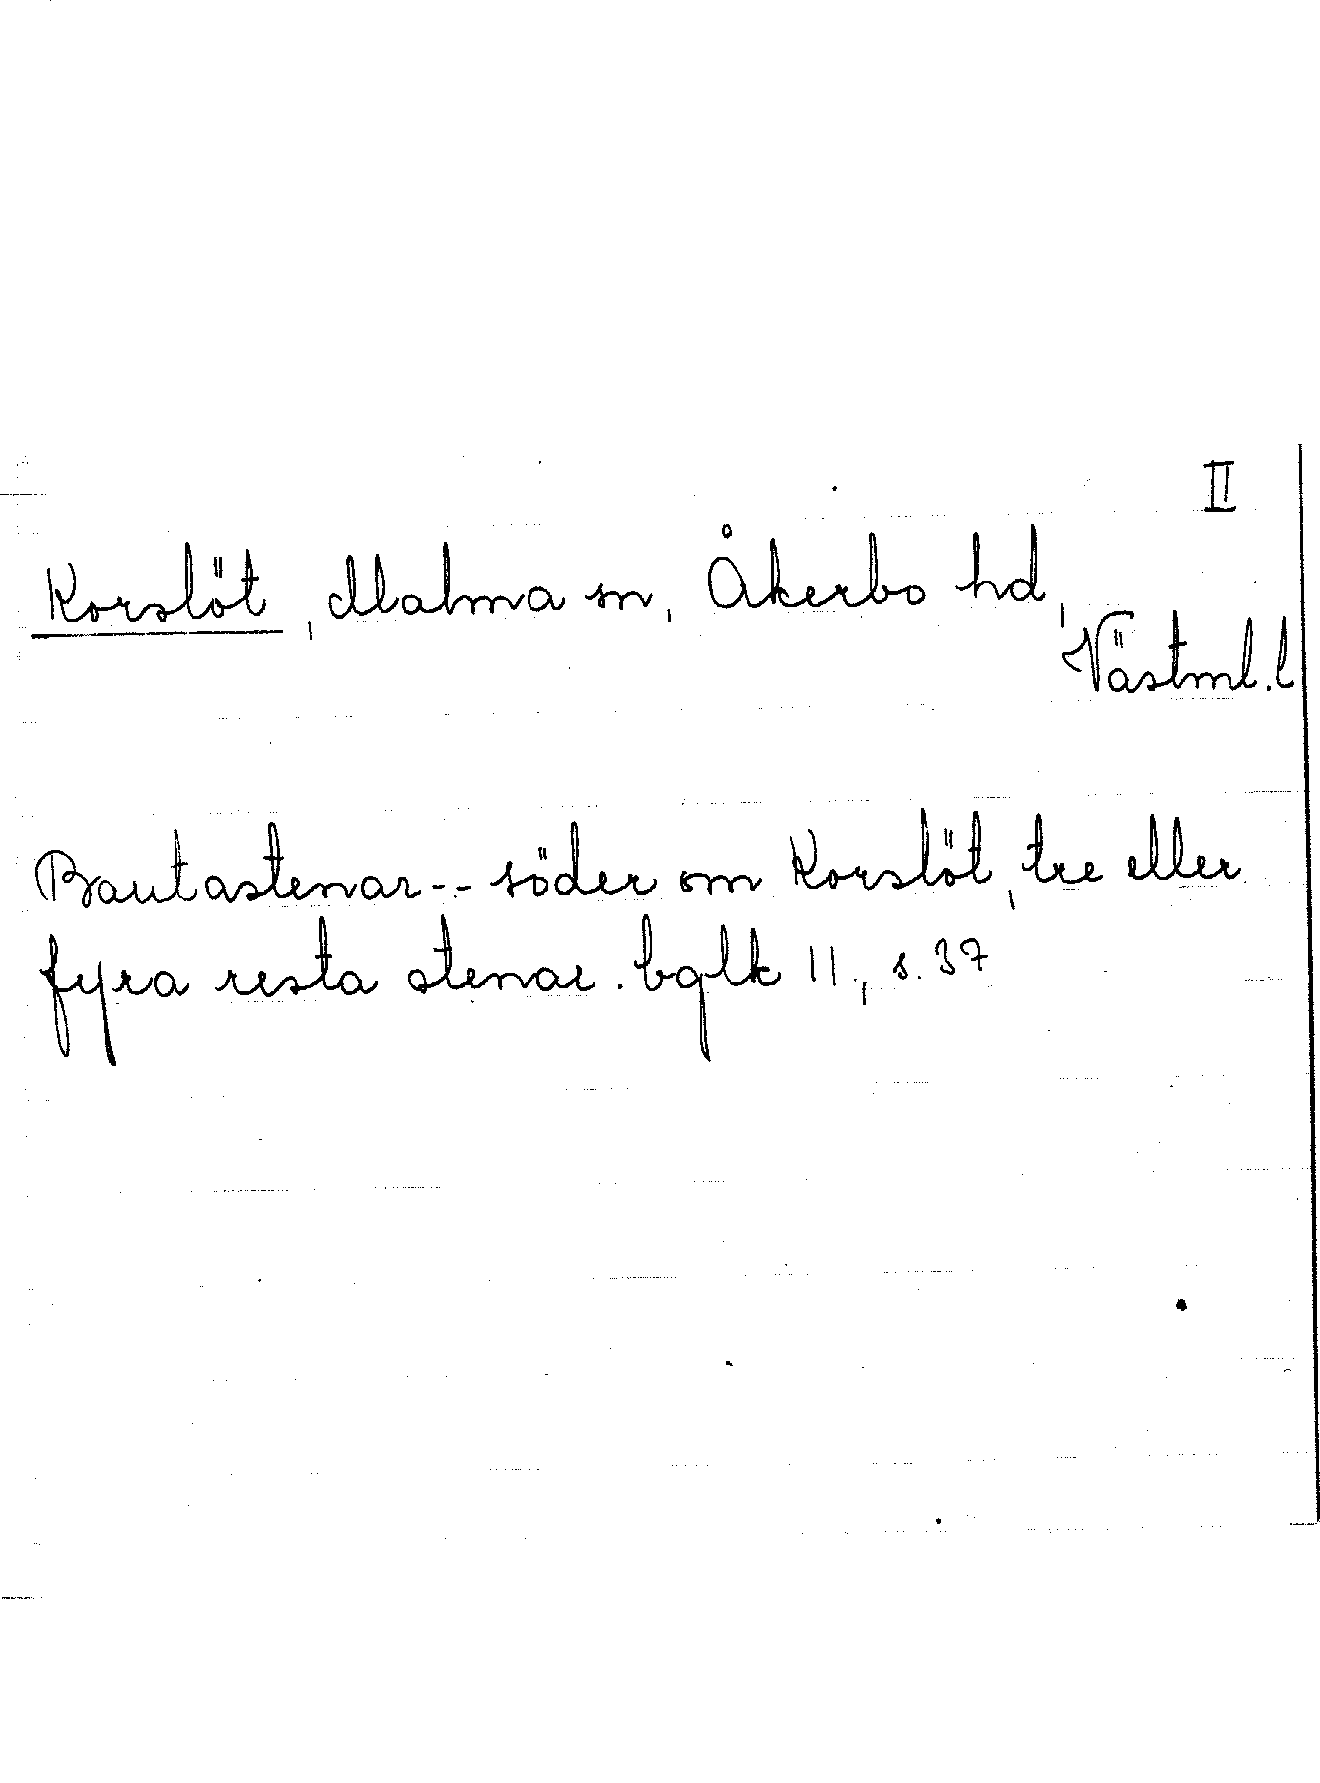 II
Korslöt, Malma sn, Åkerbo hd,
Västml. l
Bautastenar -- söder om Korslöt, tre eller
fyra resta stenar. bglk 11, s. 37